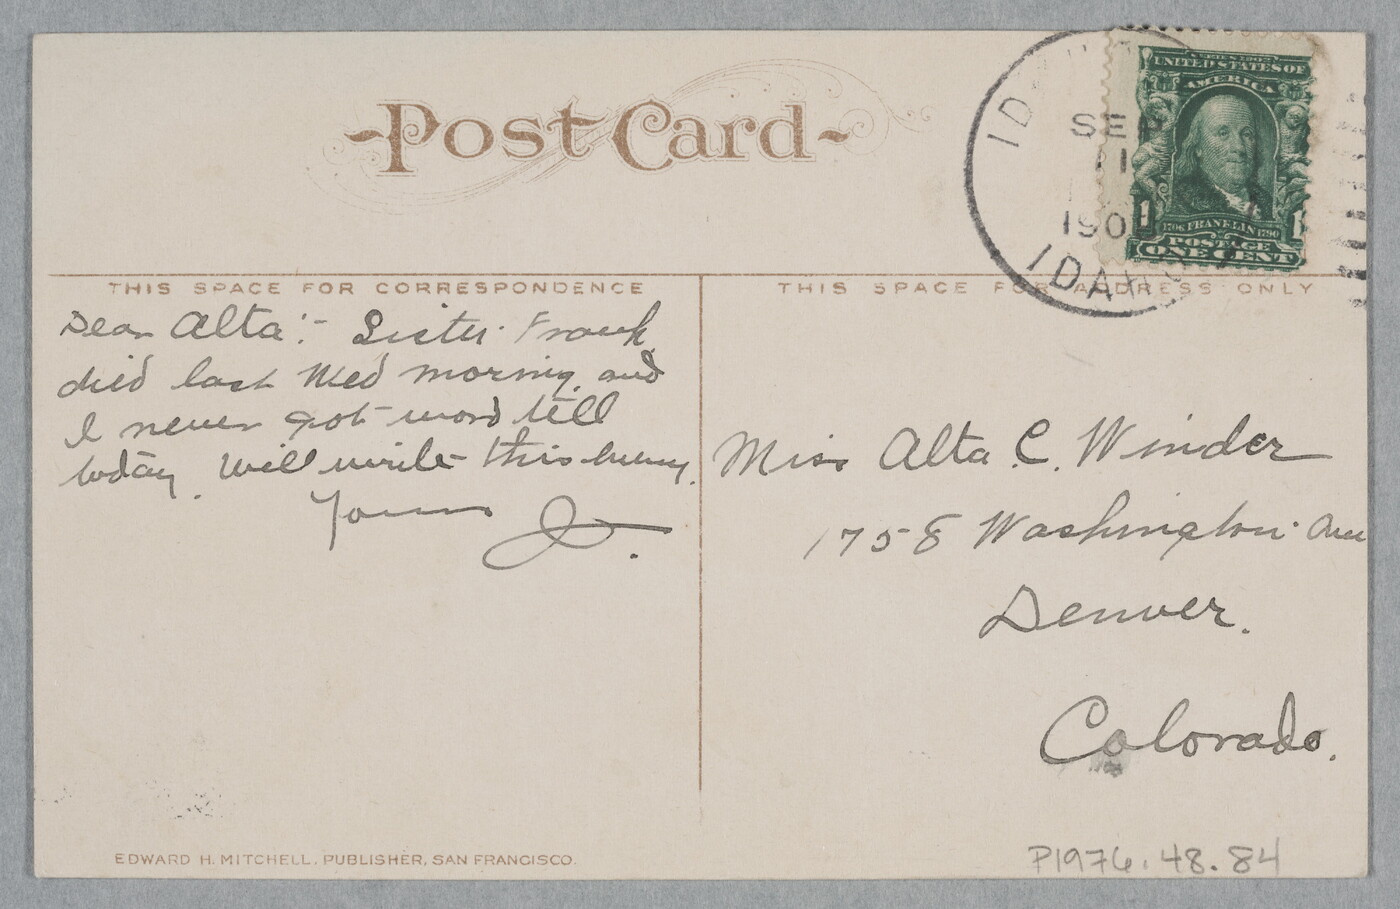 Post Card
SERIES 1902
UNITED STATES OF
AMERICA
1706 FRANKLIN 1790
1 1
POSTAGE
ONE CENT
SEP
11
190
IDAHO
THIS SPACE FOR CORRESPONDENCE
THIS SPACE FOR ADDRESS ONLY
Dear Alta:- Sister Frank
died last Wed morning and
I never got word till
today. Will write this
Yours J.
Miss Alta C. Winder
1758 Washington Ave
Denver.
Colorado.
EDWARD H. MITCHELL, PUBLISHER, SAN FRANCISCO.
P1976.48.84